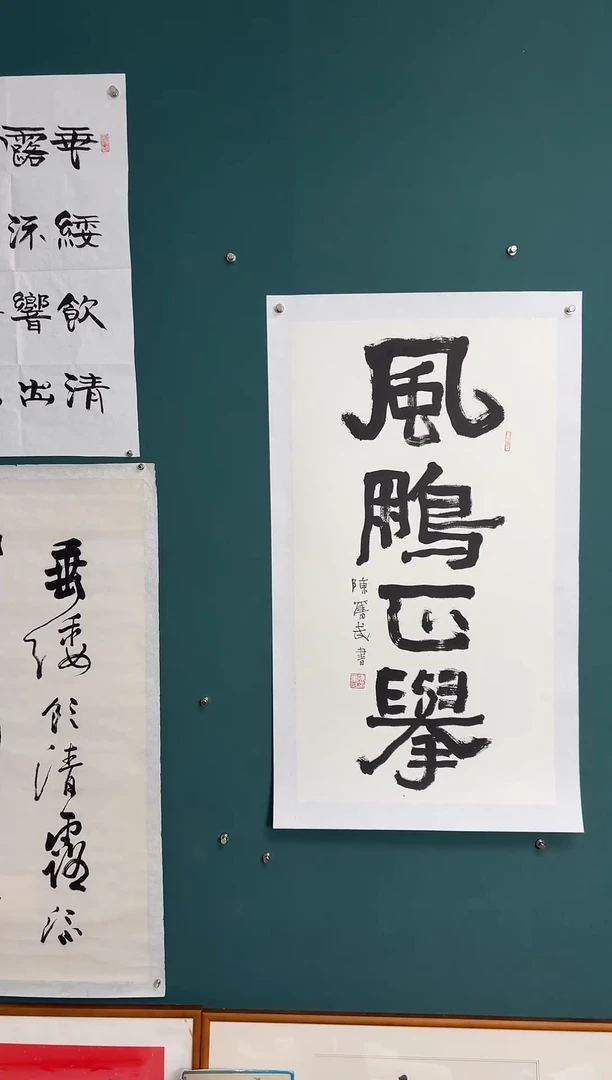 風鵬正擧
陳奮武書
垂緌飲清
露流響出
垂緌飲清露流